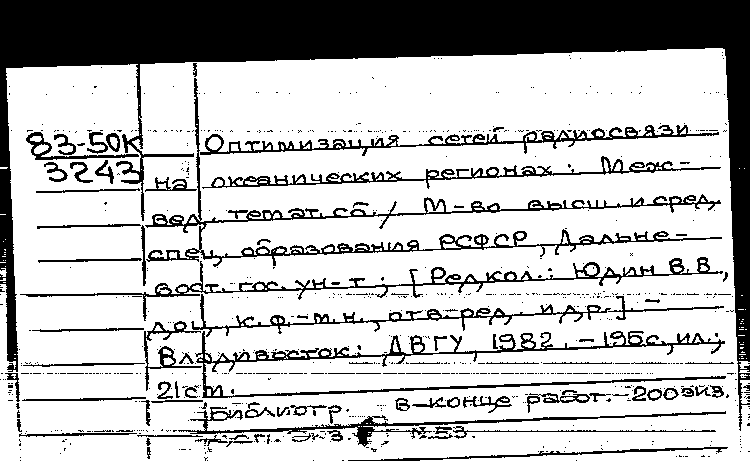 83-50К Оптимизация сетей радиосвязи
3243 на океанических регионах: Меж-
вед. темат. сб. / М-во высш. и сред.
спец. образования РСФСР, Дальне-
вост. гос. ун-т; [Редкол.: Юдин В.В.,
доц., к.ф.-м.н., отв. ред. и др.]. -
Владивосток: ДВГУ, 1982. - 195с., ил.;
21см.
Библиогр. в конце работ. - 200 экз.
№53.